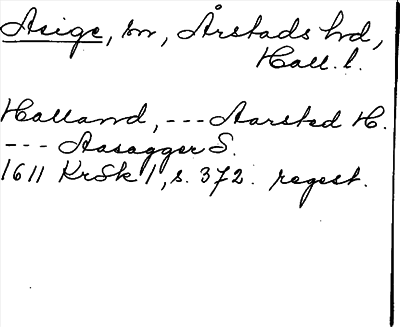 Asige, sn, Årstads hd,
Hall. l.
Halland, --- Aarsted H.
--- Aasagger S.
1611 KrSk 1, s. 372. regest.